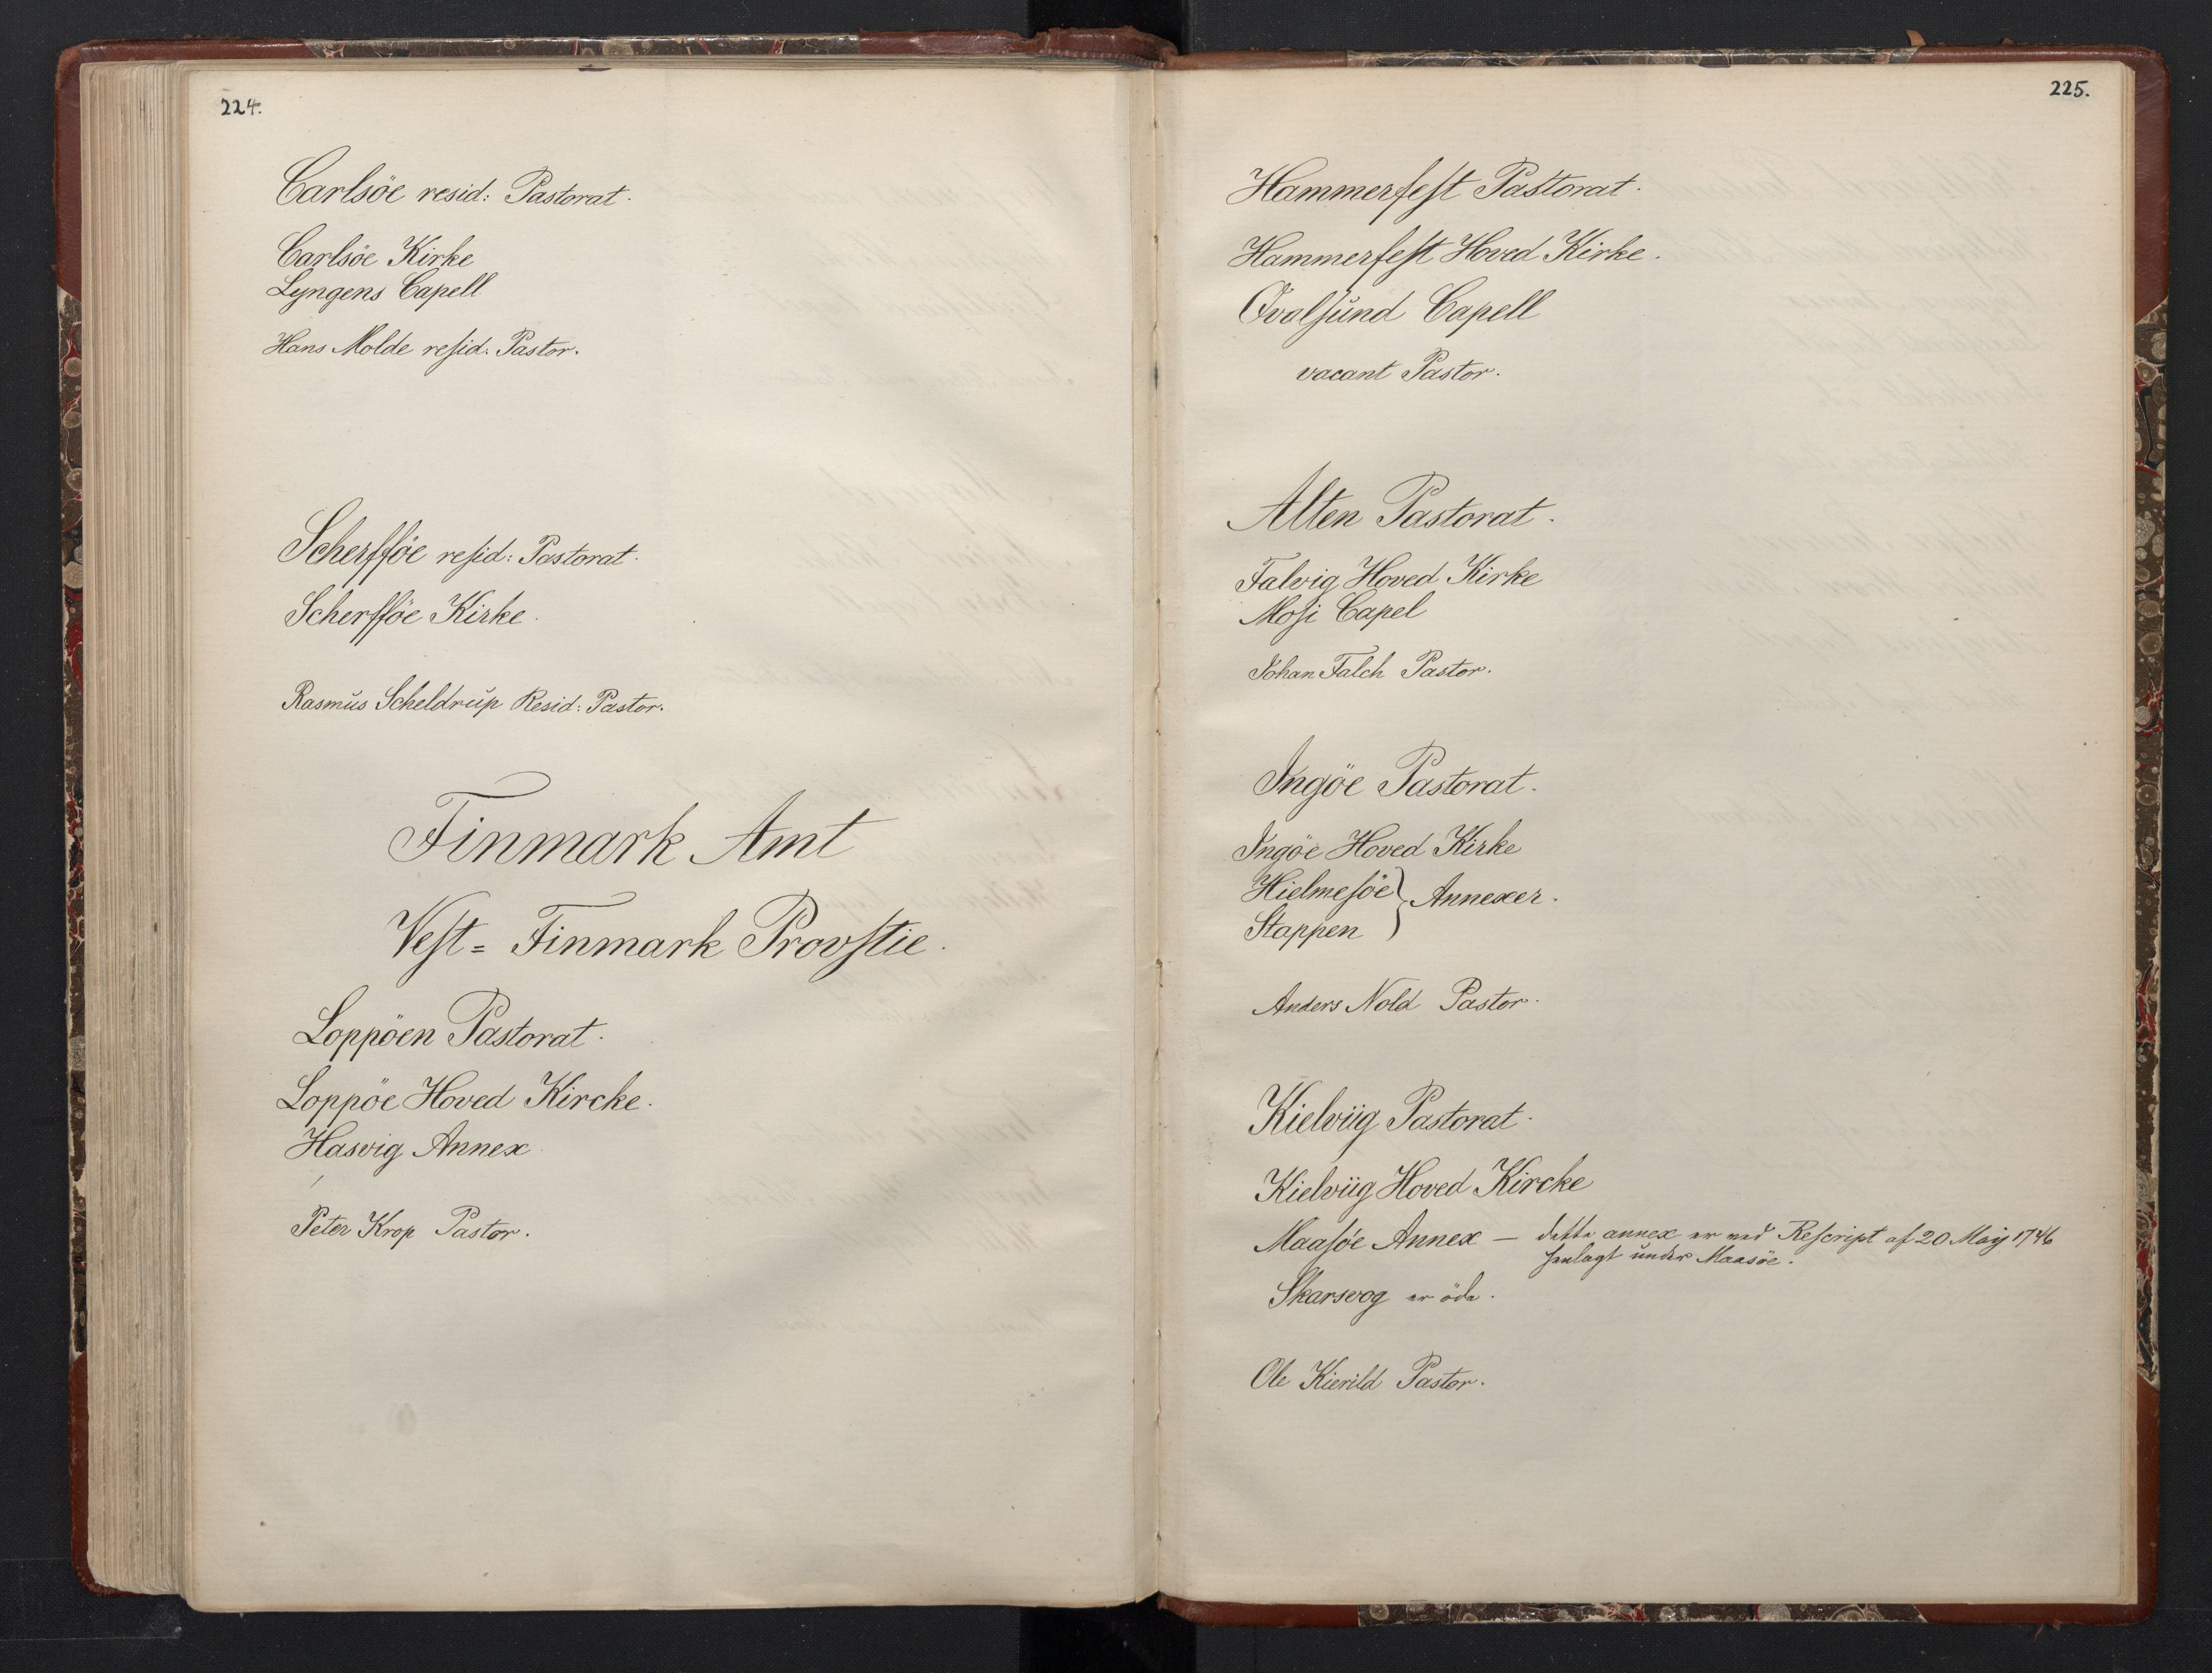 224.
Carlsöe resid: Pastorat.
Carlsöe Kirke
Lyngens Capell
Hans Molde resid: Pastor.
Scherfföe resid: Pastorat.
Scherfföe Kirke.
Rasmus Scheldrup Resid: Pastor.
Finmark Amt
Vest= Finmark Provstie.
Loppöen Pastorat.
Loppöe Hoved Kircke.
Hasvig Annex
Peter Krop Pastor.
225.
Hammerfest Pastorat.
Hammerfest Hoved Kirke.
Qvalsund Capell
vacant Pastor.
Alten Pastorat.
Talvig Hoved Kirke
Mosi Capel
Johan Falch Pastor.
Ingöe Pastorat.
Ingöe Hoved Kirke
Hielmesöe } Annexer.
Stappen
Anders Nold Pastor.
Kielviig Pastorat.
Kielviig Hoved Kircke
Maasöe Annex — dette annex er ved Rescript af 20 Maij 1746
henlagt under Maasöe.
Skarsvog er öde.
Ole Kierild Pastor.